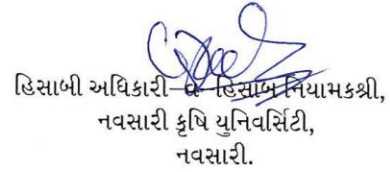 હિસાબી અધિકારી વ હિસાબ નિયામકશ્રી,
નવસારી કૃષિ યુનિવર્સિટી,
નવસારી.